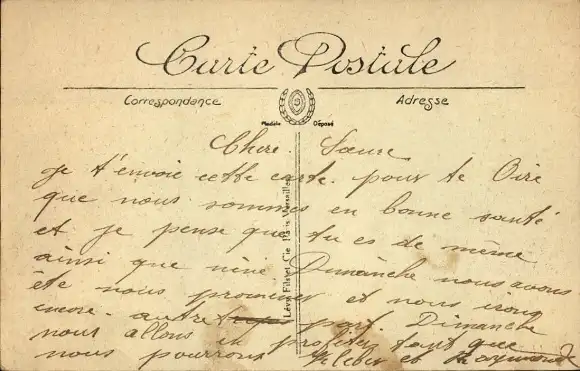 Carte Postale
Correspondance
Adresse
Modèle Déposé
Chere Sœure
Je t'envoie cette carte pour te Dire
que nous sommes en bonne santé
et je pense que tu es de même
ainsi que niné Dimanche nous avons
éte nous promener et nous irons
encore autre part Dimanche
nous allons en profiter tant que
nous pourrons Kleber et Raymonde
Lévy Fils et Cie Paris Versailles